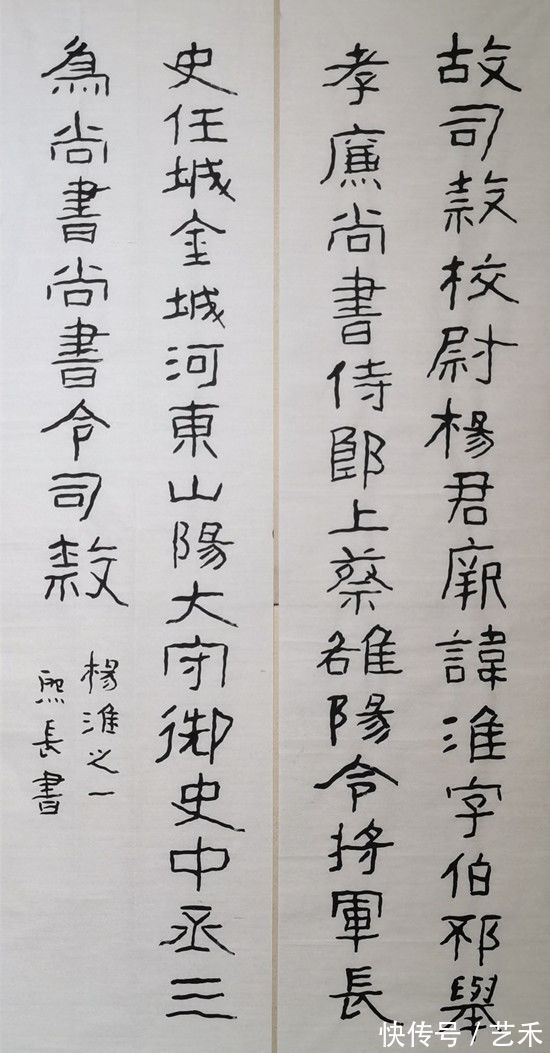 故司𣜩校尉楊君厥諱淮字伯邳舉
孝廉尚書侍郎上蔡雒陽令將軍長
史任城金城河東山陽大守御史中丞三
為尚書尚書令司𣜩
楊淮之一
熙長書
快传号/艺禾